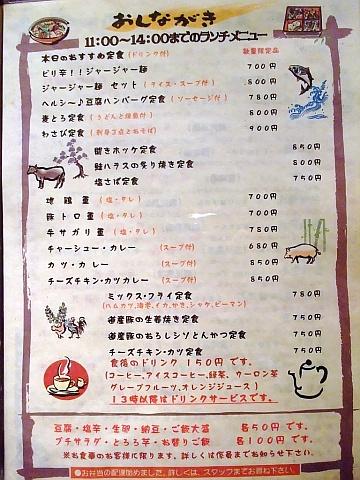 おしながき
11:00～14:00までのランチ・メニュー
本日のおすすめ定食(ドリンク付) 数量限定品
ピリ辛!!ジャージャー麺 700円
ジャージャー麺 セット(ライス・スープ付) 850円
ヘルシー♪豆腐ハンバーグ定食(ソーセージ付) 780円
麦とろ定食(うどんと煮魚付) 800円
わさび定食(刺身3点とおそば) 900円
開きホッケ定食 850円
鮭ハラスの炙り焼き定食 800円
塩さば定食 750円
地鶏重(塩・タレ) 700円
豚トロ重(塩・タレ) 700円
牛サガリ重(塩・タレ) 780円
チャーシュー・カレー (スープ付) 680円
カツ・カレー (スープ付) 850円
チーズチキン・カツカレー (スープ付) 850円
ミックス・フライ定食 780円
(ハムカツ,海老,イカ,かき,シャケ,ピーマン)
道産豚の生姜焼き定食 750円
道産豚のおろしシソとんかつ定食 750円
チーズチキン・カツ定食 750円
食後のドリンク 150円です。
(コーヒー,アイスコーヒー,緑茶、ウーロン茶
グレープフルーツ,オレンジジュース)
13時以降はドリンクサービスです。
豆腐・塩辛・生卵・納豆・ご飯大盛 各50円です。
プチサラダ・とろろ芋・お替りご飯 各100円です。
※お食事のお客様に限ります。詳しくは係員までお知らせ下さい。
●お弁当の配達始めました。詳しくは、スタッフまでお尋ね下さい。